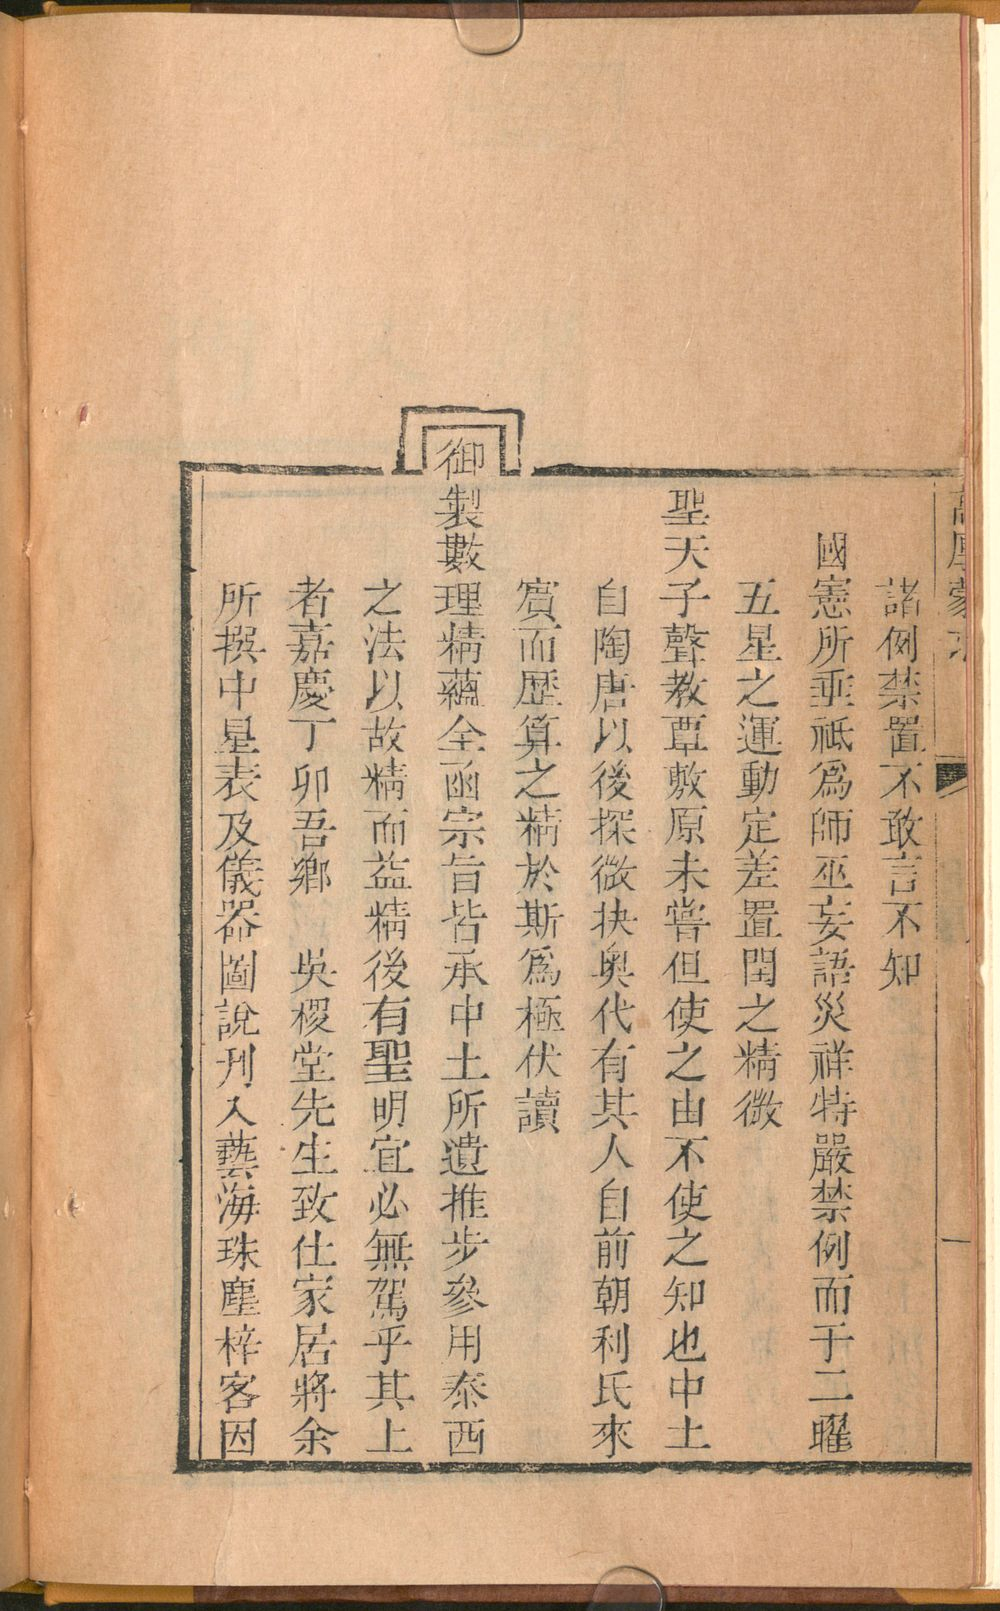 諸例禁置不敢言不知
國憲所垂祗爲師巫妄語災祥特嚴禁例而于二曜
五星之運動定差置閏之精微
聖天子聲教覃敷原未嘗但使之由不使之知也中土
自陶唐以後探微抉奥代有其人自前朝利氏來
賓而歴算之精於斯爲極伏讀
御製數理精蘊全函宗旨皆承中土所遺推步參用泰西
之法以故精而益精後有聖明宜必無駕乎其上
者嘉慶丁卯吾鄉 吳稷堂先生致仕家居將余
所撰中星表及儀器圖說刊入藝海珠塵梓客因